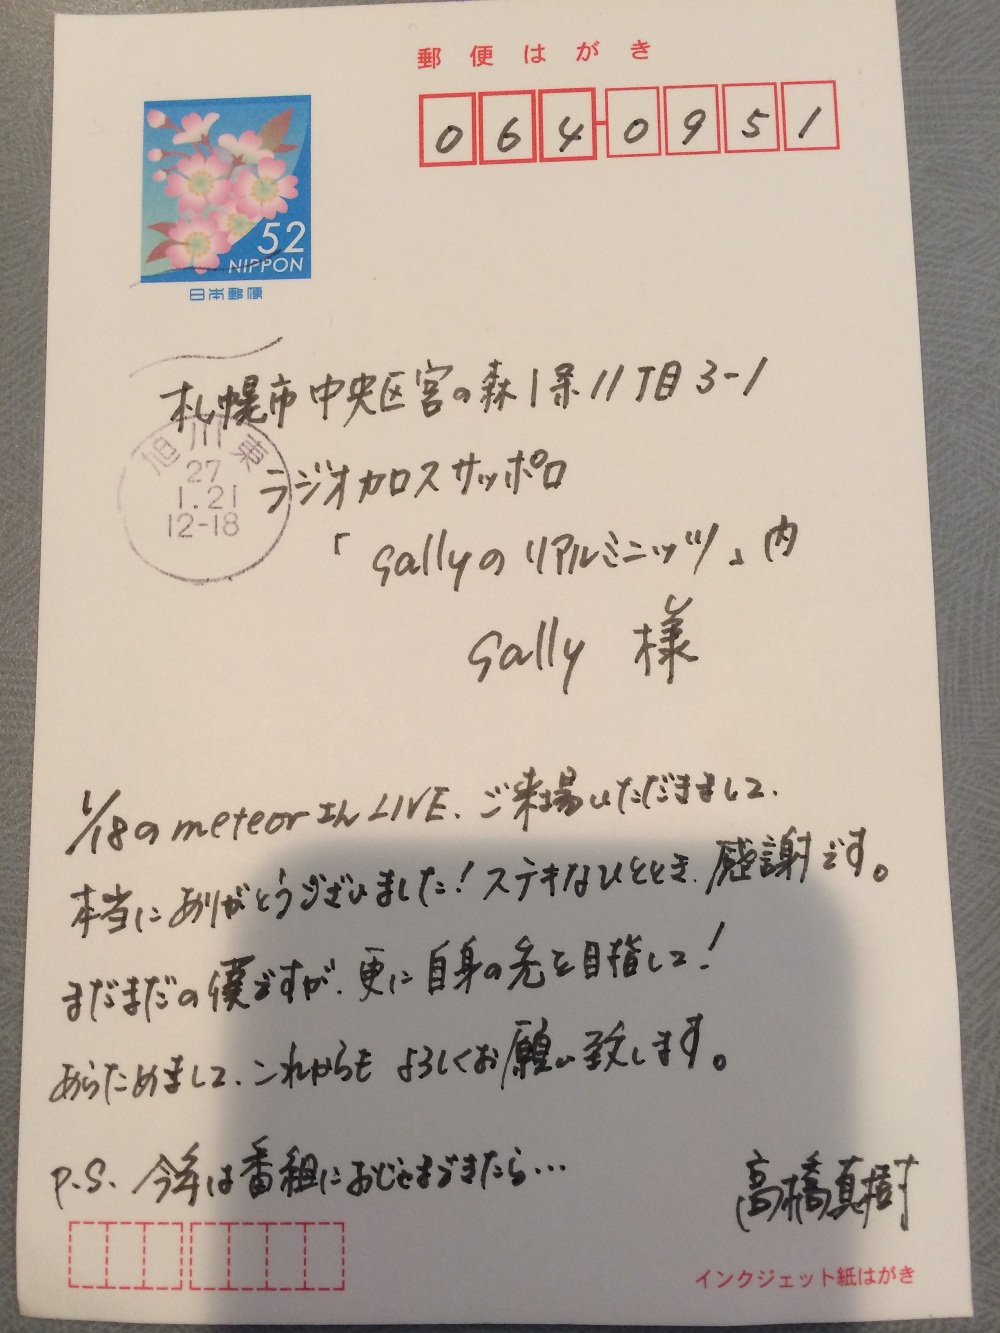 郵便はがき
064-0951
52
NIPPON
日本郵便
札幌市中央区宮の森1条11丁目3-1
旭川東
27
1.21
12-18
ラジオカロスサッポロ
「Sallyのリアルミニッツ」内
Sally 様
1/18のmeteorさんLIVE、ご来場いただきまして、
本当にありがとうございました!ステキなひととき、感謝です。
まだまだの僕ですが、更に自身の先を目指して!
あらためまして、これからもよろしくお願い致します。
P.S. 今年は番組におじゃまできたら…
高橋真樹
インクジェット紙はがき